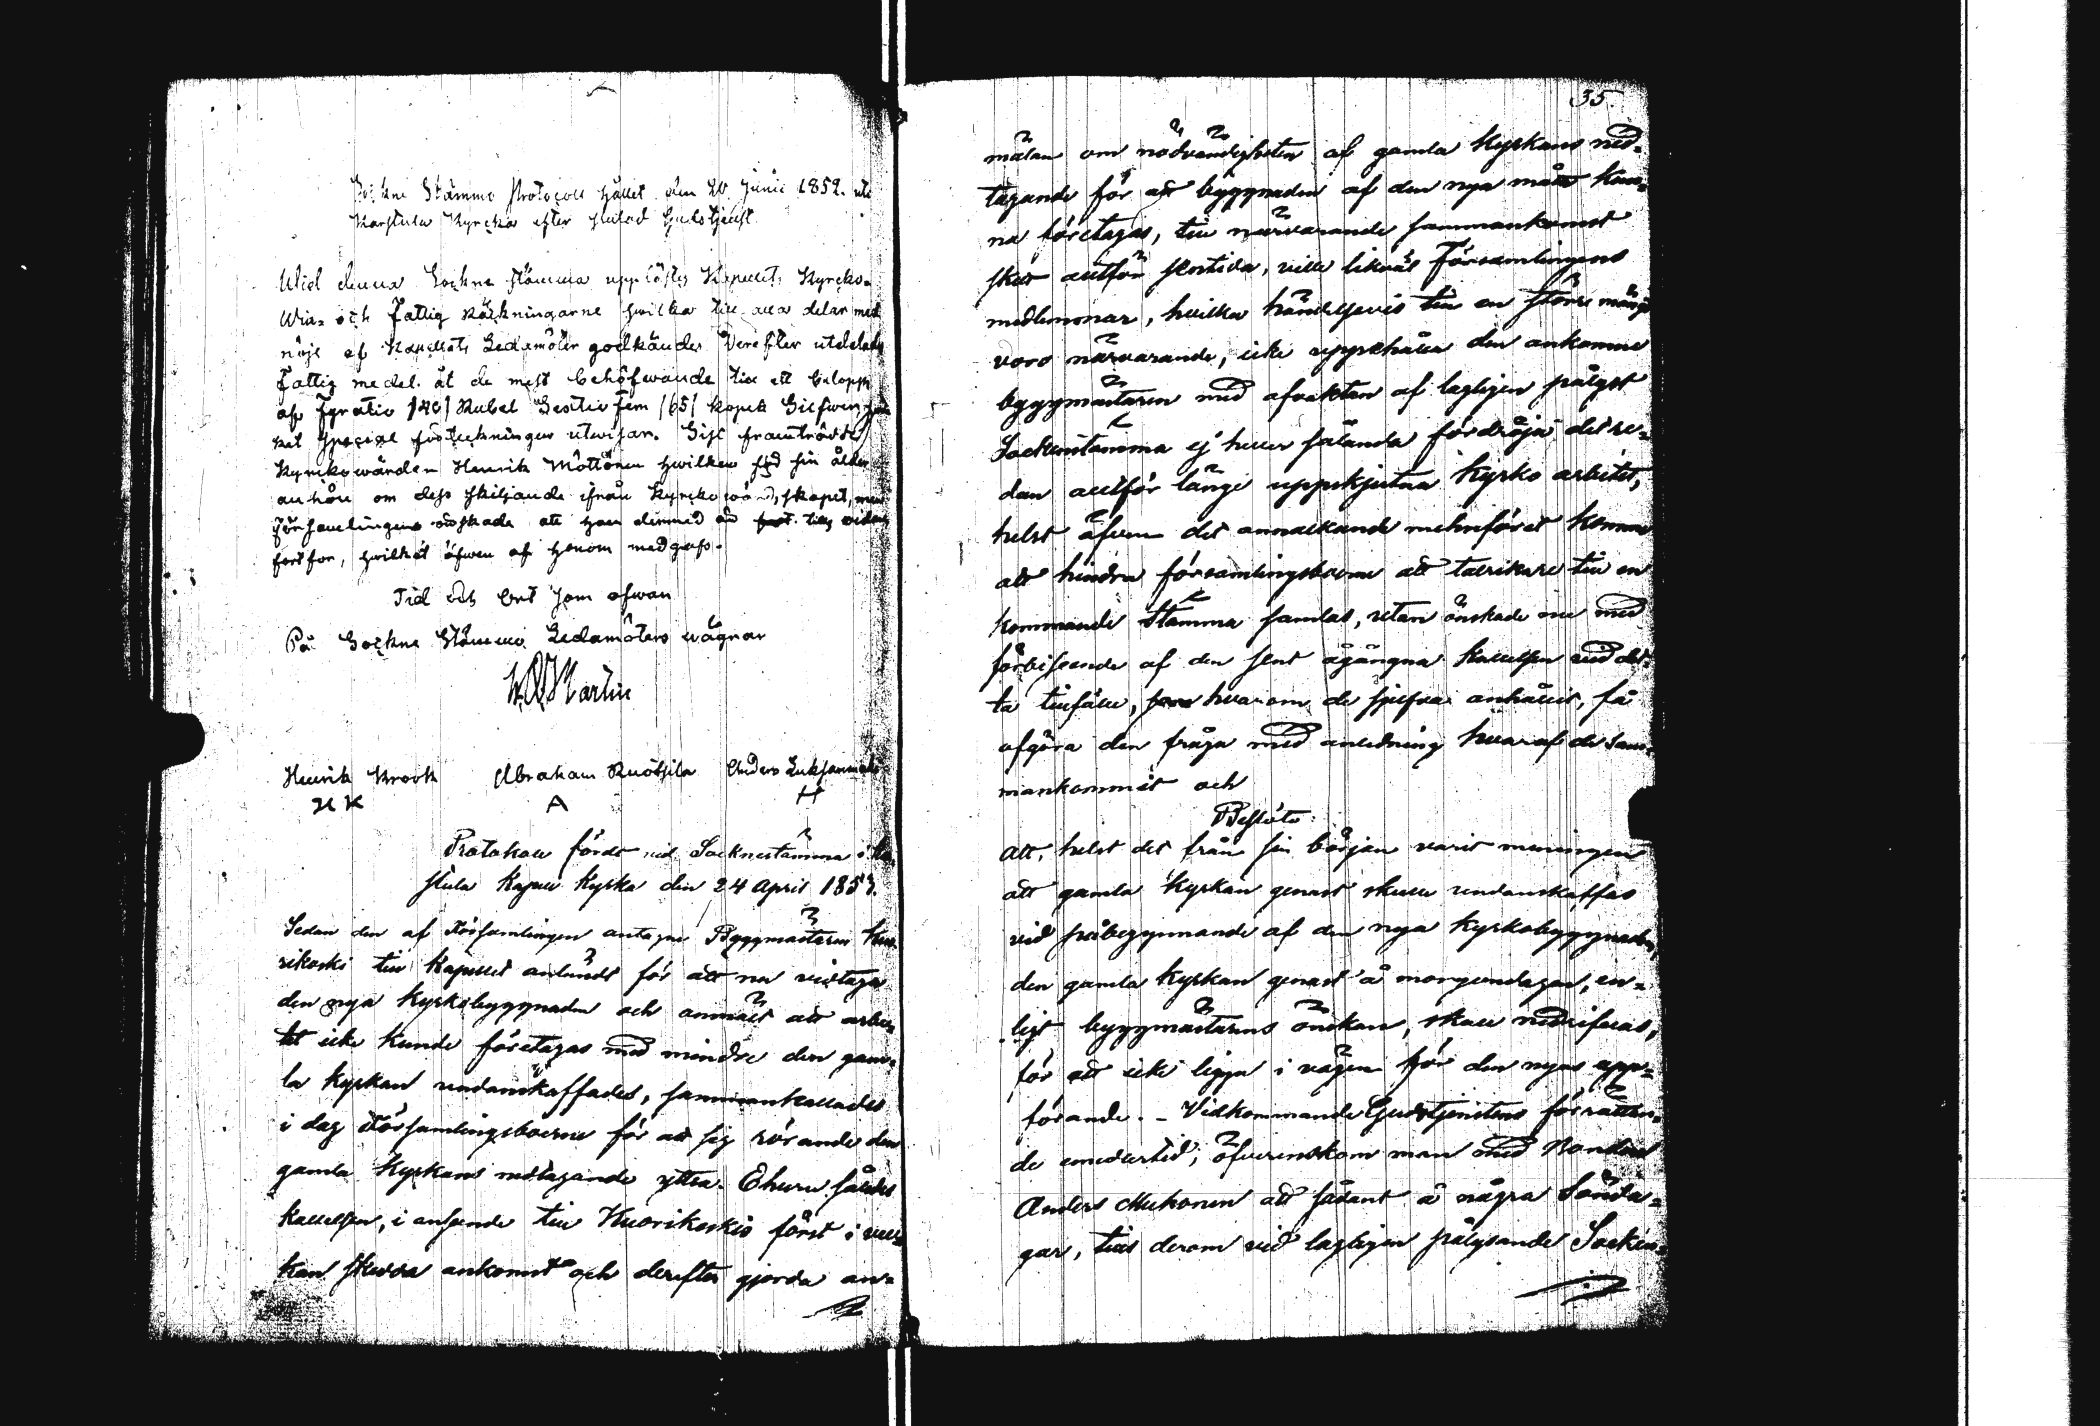 Sockne Stämmo Protocoll hållet den 20 Junii 1852. uti
Karstula Kyrcka efter slutad Gudstjenst
Wid denna Sockne stämma upplästes Kapellets Kyrcko-
Win- och Fattig Räkningarne hwilka till alla delar med
nöje af Kapellets Ledamöter godkändes Derefter utdelades
Fattig medel åt de mest behöfwande till ett belopp
af Fyratio /40/ Rubel Sextio Fem /65/ kopek Silfwer,
ket special förteckningen utwisar. Sist framträdde
Kyrckowärden Henrik Möttönen hwilken för sin ålder
anhöll om dess skiljande ifrån Kyrckowärdskapet, men
Församlingen önskade att han dermed än widare
fortfor, hwilket äfwen af honom medgafs.
Tid och Ort som ofwan
På Sockne Stämmo Ledamöters wägnar
Martin
Henrik Krook Abraham Ruotsila Anders
HK A H
Protokoll fördt vid Socknestämma i Kar-
stula Kapell Kyrka den 24 April 1853.
Sedan den af Församlingen antagne Byggmästaren Kuo-
rikoski till Kapellet anländt för att nu vidtaga
den nya Kyrkobyggnaden och anmält att arbe-
tet icke kunde företagas med mindre den gam-
la kyrkan undanskaffades, sammankallades
i dag Församlingsboerne för att sig rörande den
gamla Kyrkans nedtagande yttra. Ehuru således
kallelsen, i anseende till Kuorikoskis först i vec-
kan skedda ankomst och derefter gjorda an-
35.
mälan om nödvändigheten af gamla Kyrkans ned-
tagande för att byggnaden af den nya måtte kun-
na företagas, till närvarande sammankomst
skett alltför kortida, ville likväl Församlingens
medlemmar, hvilka händelsevis till en större mängd
voro närvarande, icke uppehålla den ankomne
byggmästaren med afvaktan af lagligen pålyst
Sockenstämma ej heller sålunda fördröja det re-
dan alltför länge uppskjutna Kyrko arbetet,
helst äfven det annalkande mehnföret komme
att hindra församlingsboerne att talrikare till en
kommande Stämma samlas, utan önskade nu med
förbiseende af den sent ågångna kallelsen vid det-
ta tillfälle, hvarom de sjelfva anhållit, få
afgöra den fråga med anledning hvaraf de sam-
mankommit och
Beslöto:
Att, helst det från sin början varit meningen
att gamla Kyrkan genast skulle undanskaffas
vid påbegynnande af den nya Kyrkobyggnaden,
den gamla Kyrkan genast å morgondagen, en-
ligt byggmästarens önskan, skall nedrifvas,
för att icke ligga i vägen för den nyas upp-
förande. - Vidkommande Gudstjenstens förrättan-
de emedlertid, öfverenskom man med Bonden
Anders Muhonen att sådant å några Sönda-
gar, tills derom vid lagligen pålysande Socken-